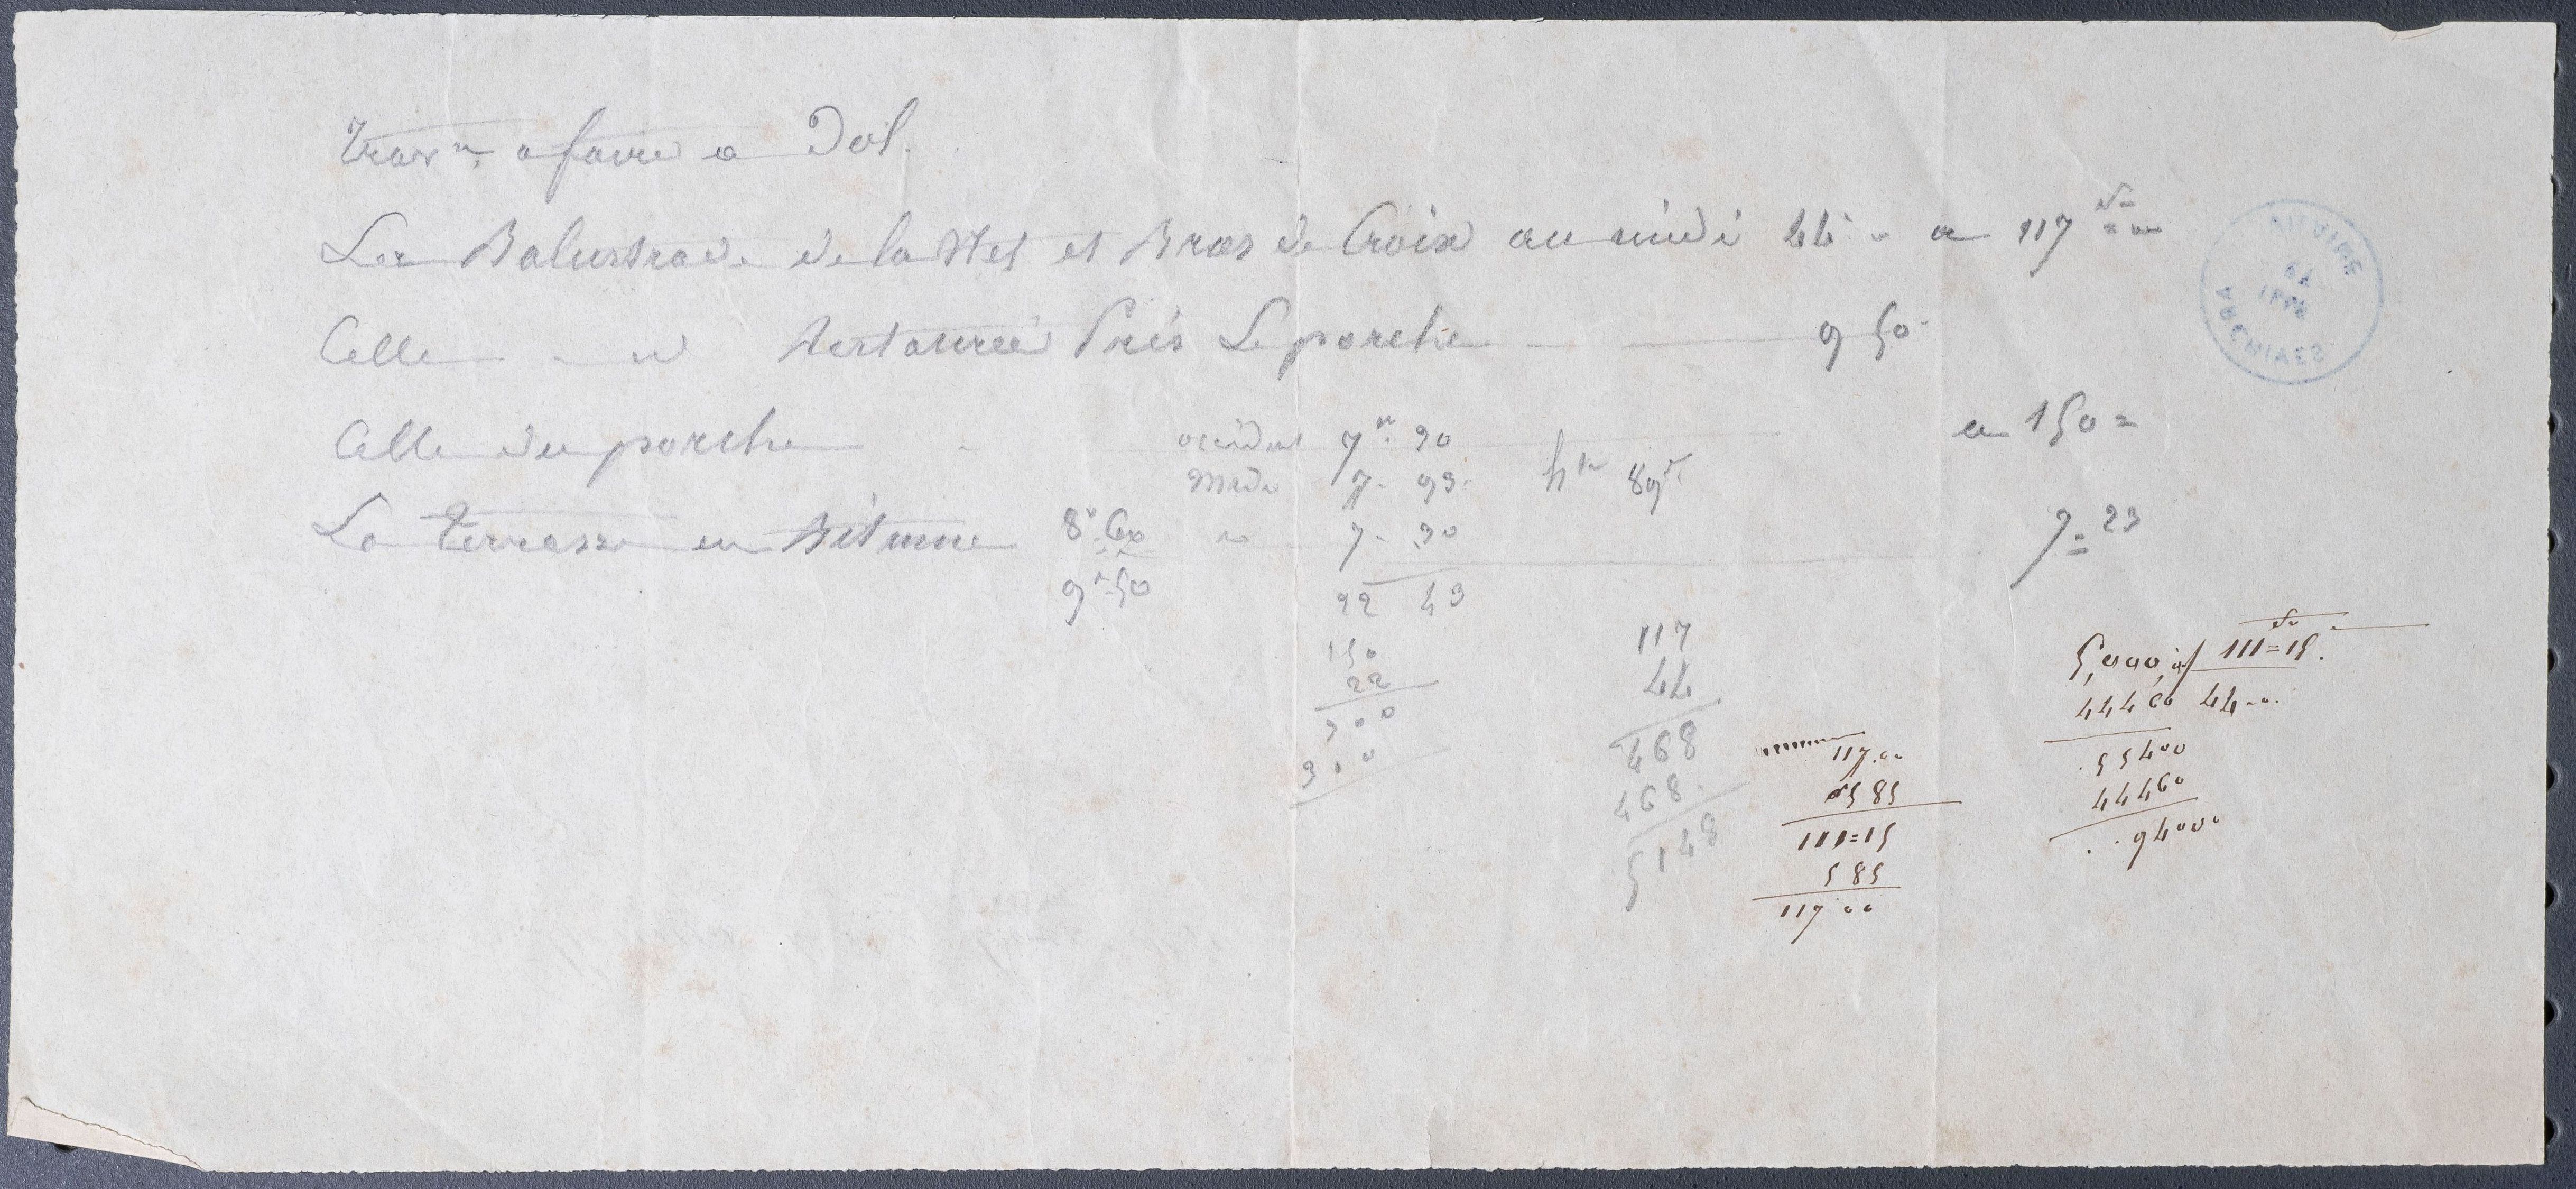 Trav.x a faire a Dol.
La Balustrade de la Nef et Bras de Croix au midi 44 = a 117 =
Celle restaurée Près Le porche 9 50
Celle du porche occident 7 m 20 a 150 =
Midi 7 - 93 h 89
La terrasse en Bitume 8 7 - 30 7 = 23
9 m 50 22 43
150
22
300
300
117
44
468
468
5148
117.00
5 85
111=15
5 85
117 00
5,000, 111=15.
44460 44
55400
44460
94000
ARCHIVES